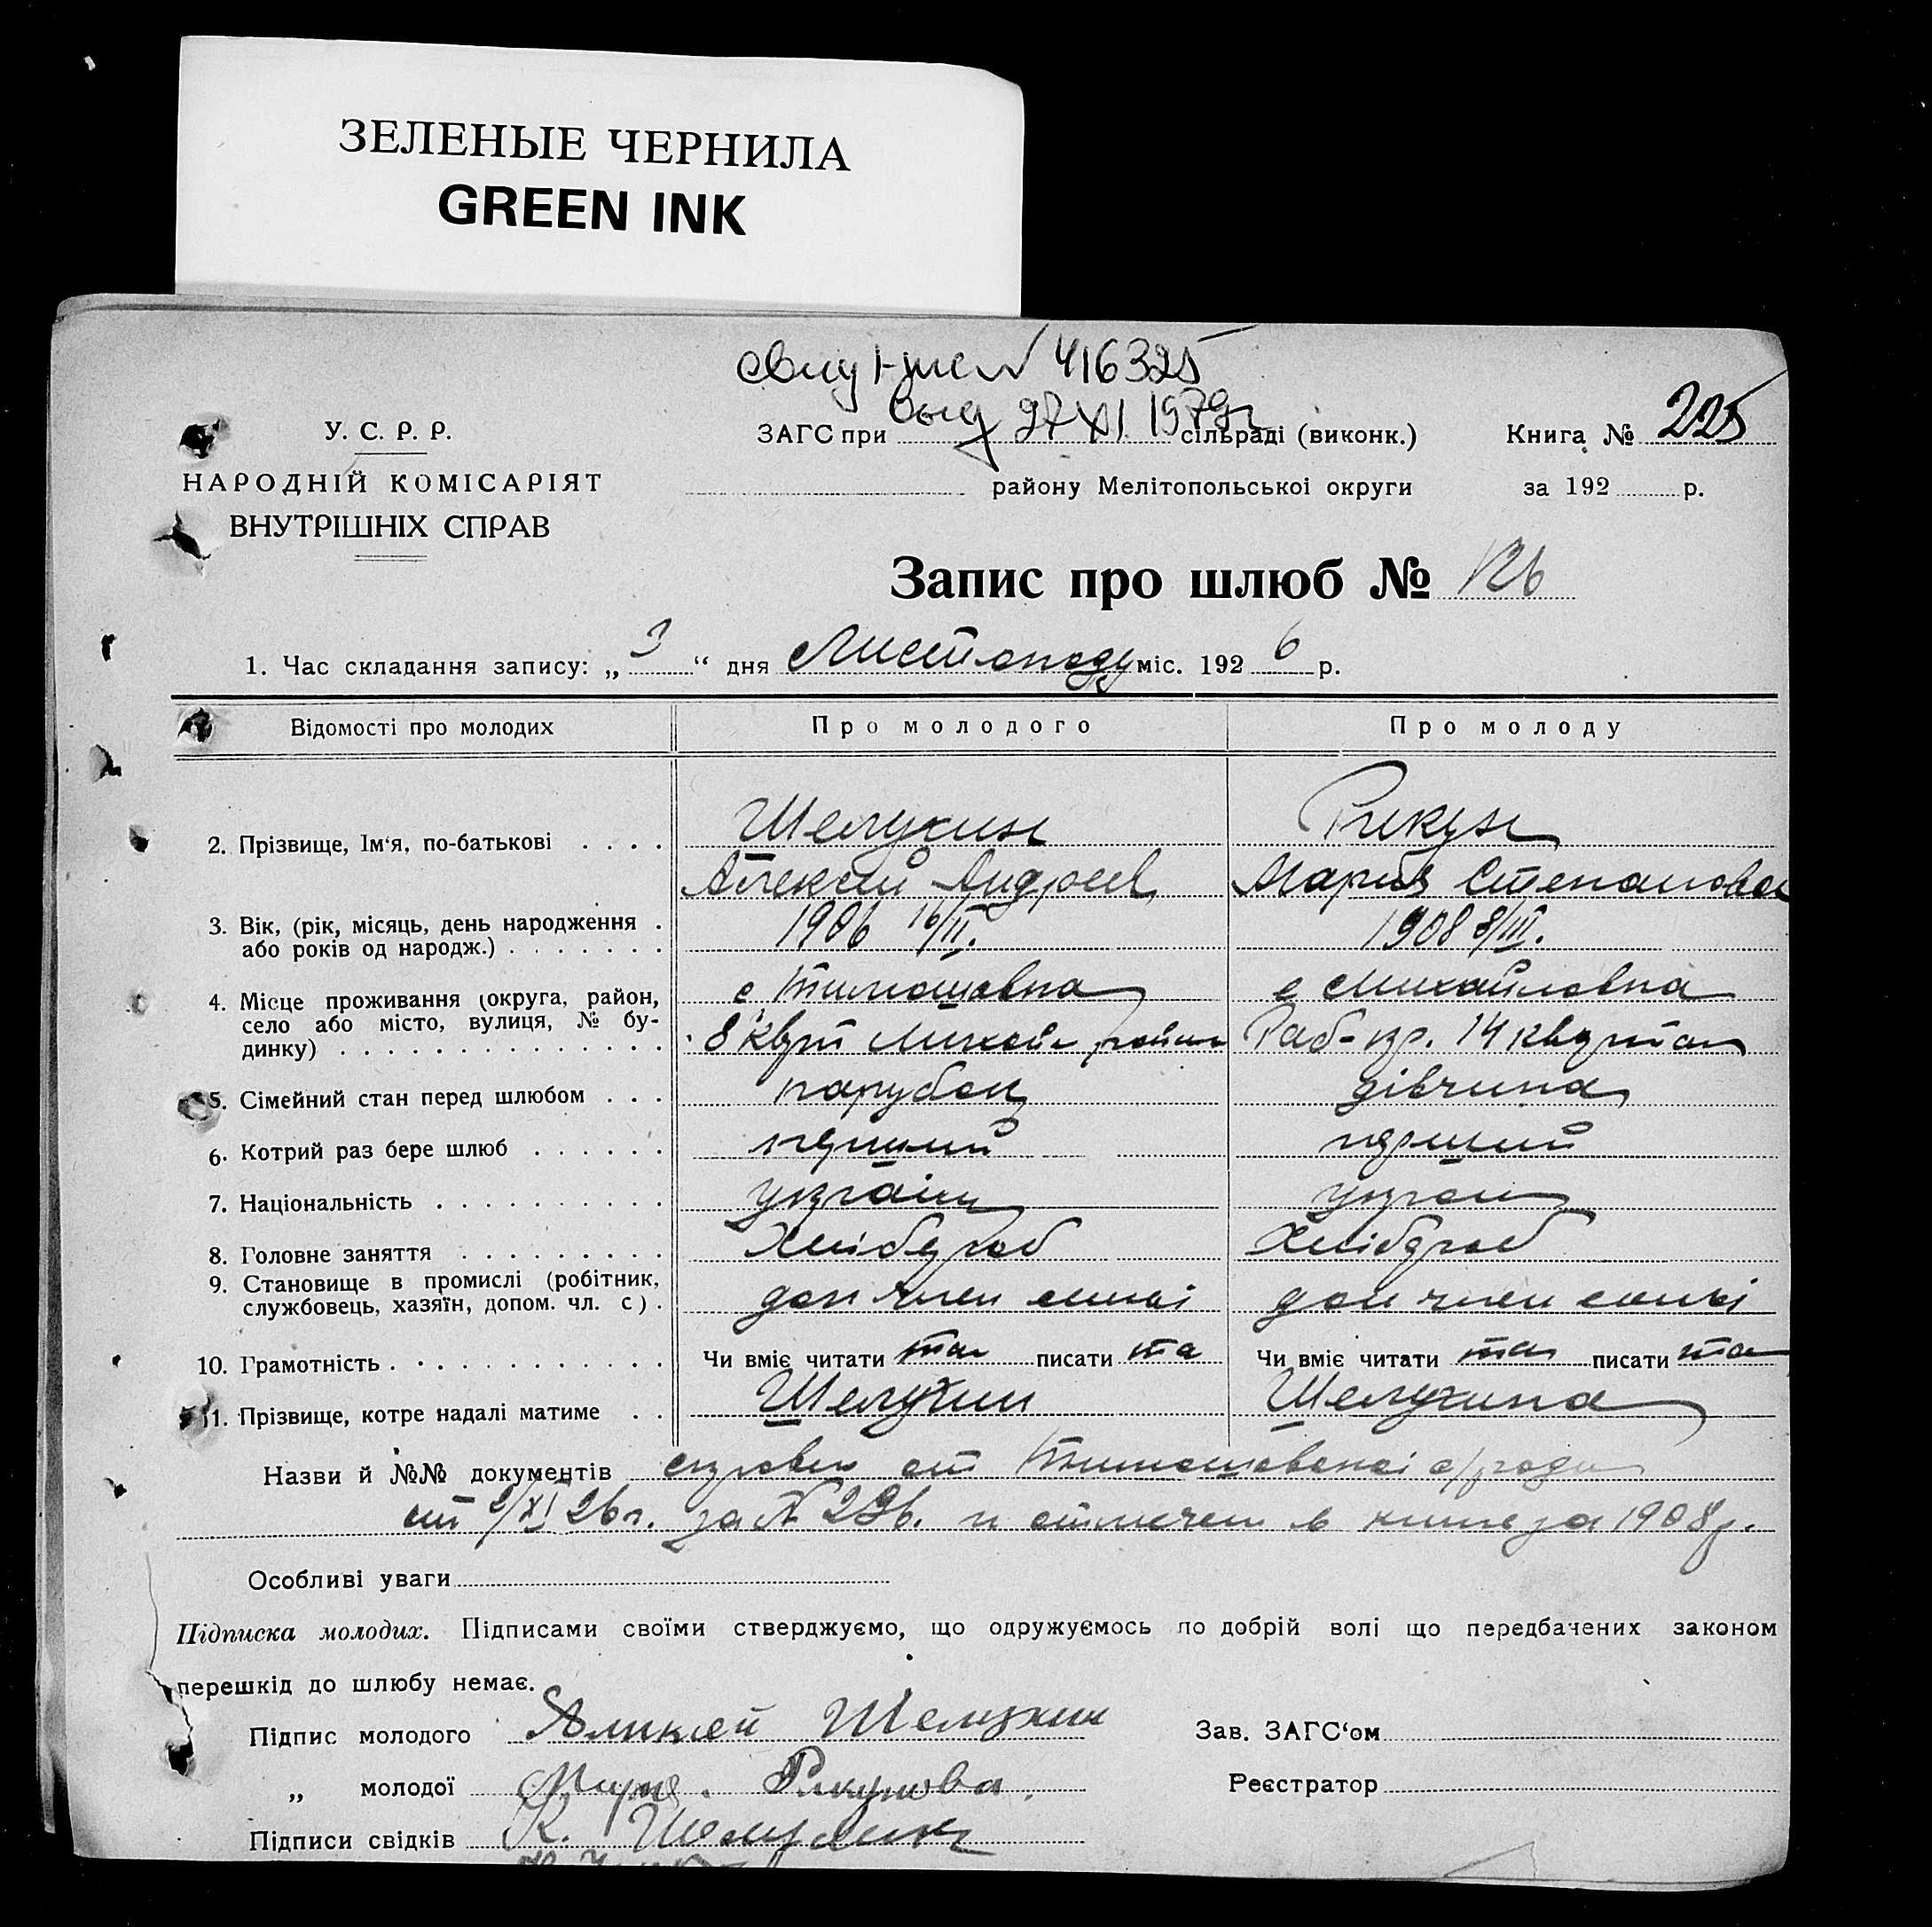 ЗЕЛЕНЫЕ ЧЕРНИЛА
GREEN INK
416325
У. С. Р. Р.
НАРОДНІЙ КОМІСАРІЯТ
ВНУТРІШНІХ СПРАВ
ЗАГС при выд 27 XI 1979г сільраді (виконк.)
Книга № 225
району Мелітопольськоі округи
за 192 р.
Запис про шлюб № 126
1. Час складання запису: „ 3 “ дня Листопаду міс. 192 6 р.
Відомості про молодих
Про молодого
Про молоду
2. Прізвище, Ім'я, по-батькові . . . .
Шелухин
Рикун
Алексей Андреев
Мария Степановна
3. Вік, (рік, місяць, день народження .
або років од народж.) . . . . . . .
1906 16/III.
1908 8/III.
4. Місце проживання (округа, район,
село або місто, вулиця, № бу-
динку) . . . . . . . . . . . . . .
с Тимошовка
с Михайловка
8 Михайл район
14 квартал
5. Сімейний стан перед шлюбом . . .
парубок
дівчина
6. Котрий раз бере шлюб . . . . . .
перший
перший
7. Національність . . . . . . . . . .
україн
україн
8. Головне заняття . . . . . . . . .
Хлібороб
Хлібороб
9. Становище в промислі (робітник,
службовець, хазяїн, допом. чл. с) .
доп член симьі
доп член симьі
10. Грамотність . . . . . . . . . . . .
Чи вміє читати так писати та
Чи вміє читати так писати та
11. Прізвище, котре надалі матиме . .
Шелухин
Шелухина
Назви й №№ документів от Тимошовскоі с/ради
от 2/XI 26 г. за № 226. и отмечен в книге за 1908 г.
Особливі уваги
Підписка молодих. Підписами своїми стверджуємо, що одружуємось по добрій волі що передбачених законом
перешкід до шлюбу немає.
Підпис молодого Аликсей Шелухин
Зав. ЗАГС‘ом
„ молодої Мария. Рикунова.
Реєстратор
Підписи свідків К. Шелухин